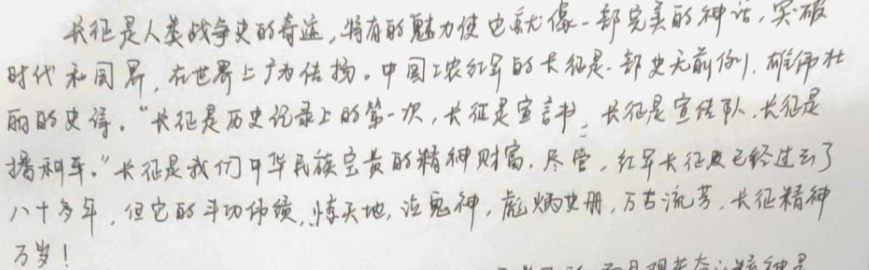 长征是人类战争史的奇迹,特有的魅力使它就像一部完美的神话,突破
时代和国界,在世界上广为传扬。中国工农红军的长征是一部史无前例、雄伟壮
丽的史诗。“长征是历史记录上的第一次,长征是宣言书,长征是宣传队,长征是
播种车。”长征是我们中华民族宝贵的精神财富。尽管,红军长征虽已经过去了
八十多年,但它的丰功伟绩,惊天地,泣鬼神,彪炳史册,万古流芳。长征精神
万岁!